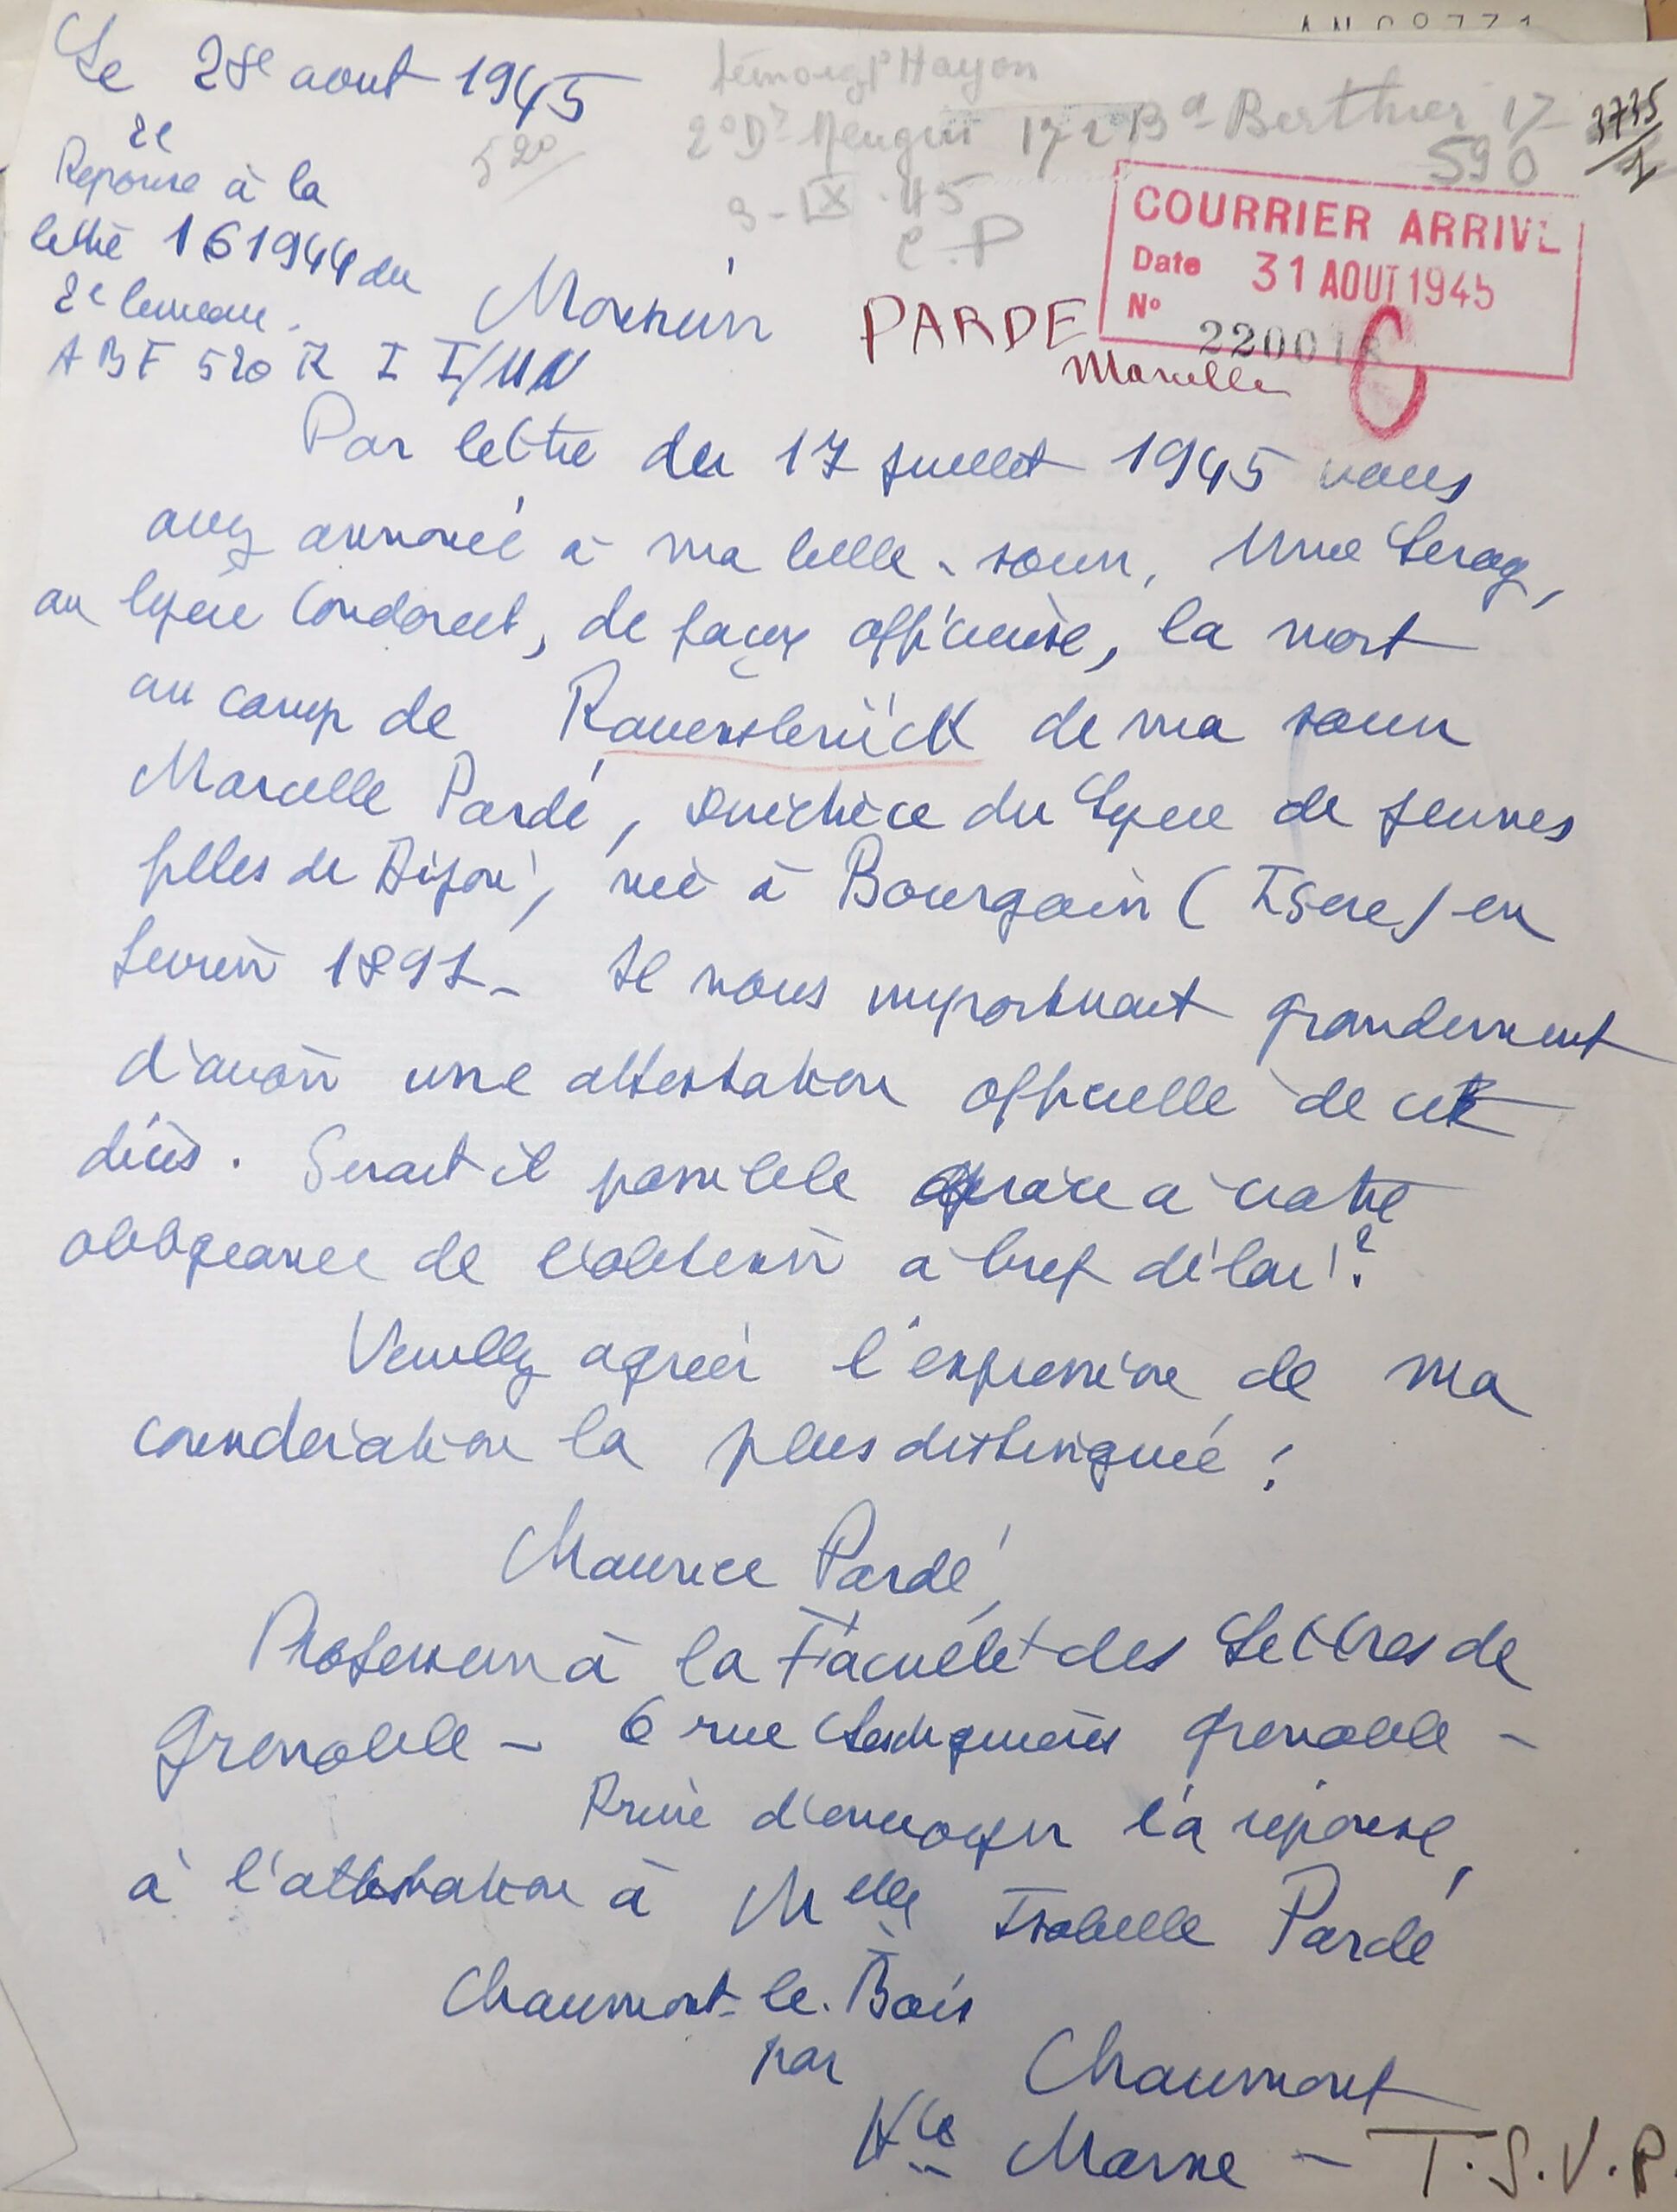 Le 28e aout 1945
2e
Réponse à la
lettre 161944 du
2e bureau.
A B F 520 R I I/UN
520
Témoig Hayon
2° Dr 172 Bd Berthier 17
590
3735
1
3-IX-45
C.P
COURRIER ARRIVÉ
Date 31 AOUT 1945
N° 22001
C
Monsieur
PARDE
Marcelle
Par lettre du 17 juillet 1945 vous
avez annoncé à ma belle-soeur, Mme
au lycée Condorcet, de façon officieuse, la mort
au camp de Ravensbrück de ma soeur
Marcelle Pardé, directrice du Lycée de jeunes
filles de Dijon, née à Bourgoin (Isère) en
février 1891- Il nous importerait grandement
d'avoir une attestation officielle de cet
décès. Serait il possible grâce à votre
obligeance de l'obtenir à bref délai?
Veuillez agréer l'expression de ma
considération la plus distinguée;
Maurice Pardé
Professeur à la Faculté des Lettres de
Grenoble - 6 rue Lesdiguières Grenoble -
Prière d'envoyer la réponse,
à l'attestation à Melle Isabelle Pardé
Chaumont-le-Bois
par Chaumont
Hte Marne - T.S.V.P.
AN 08771